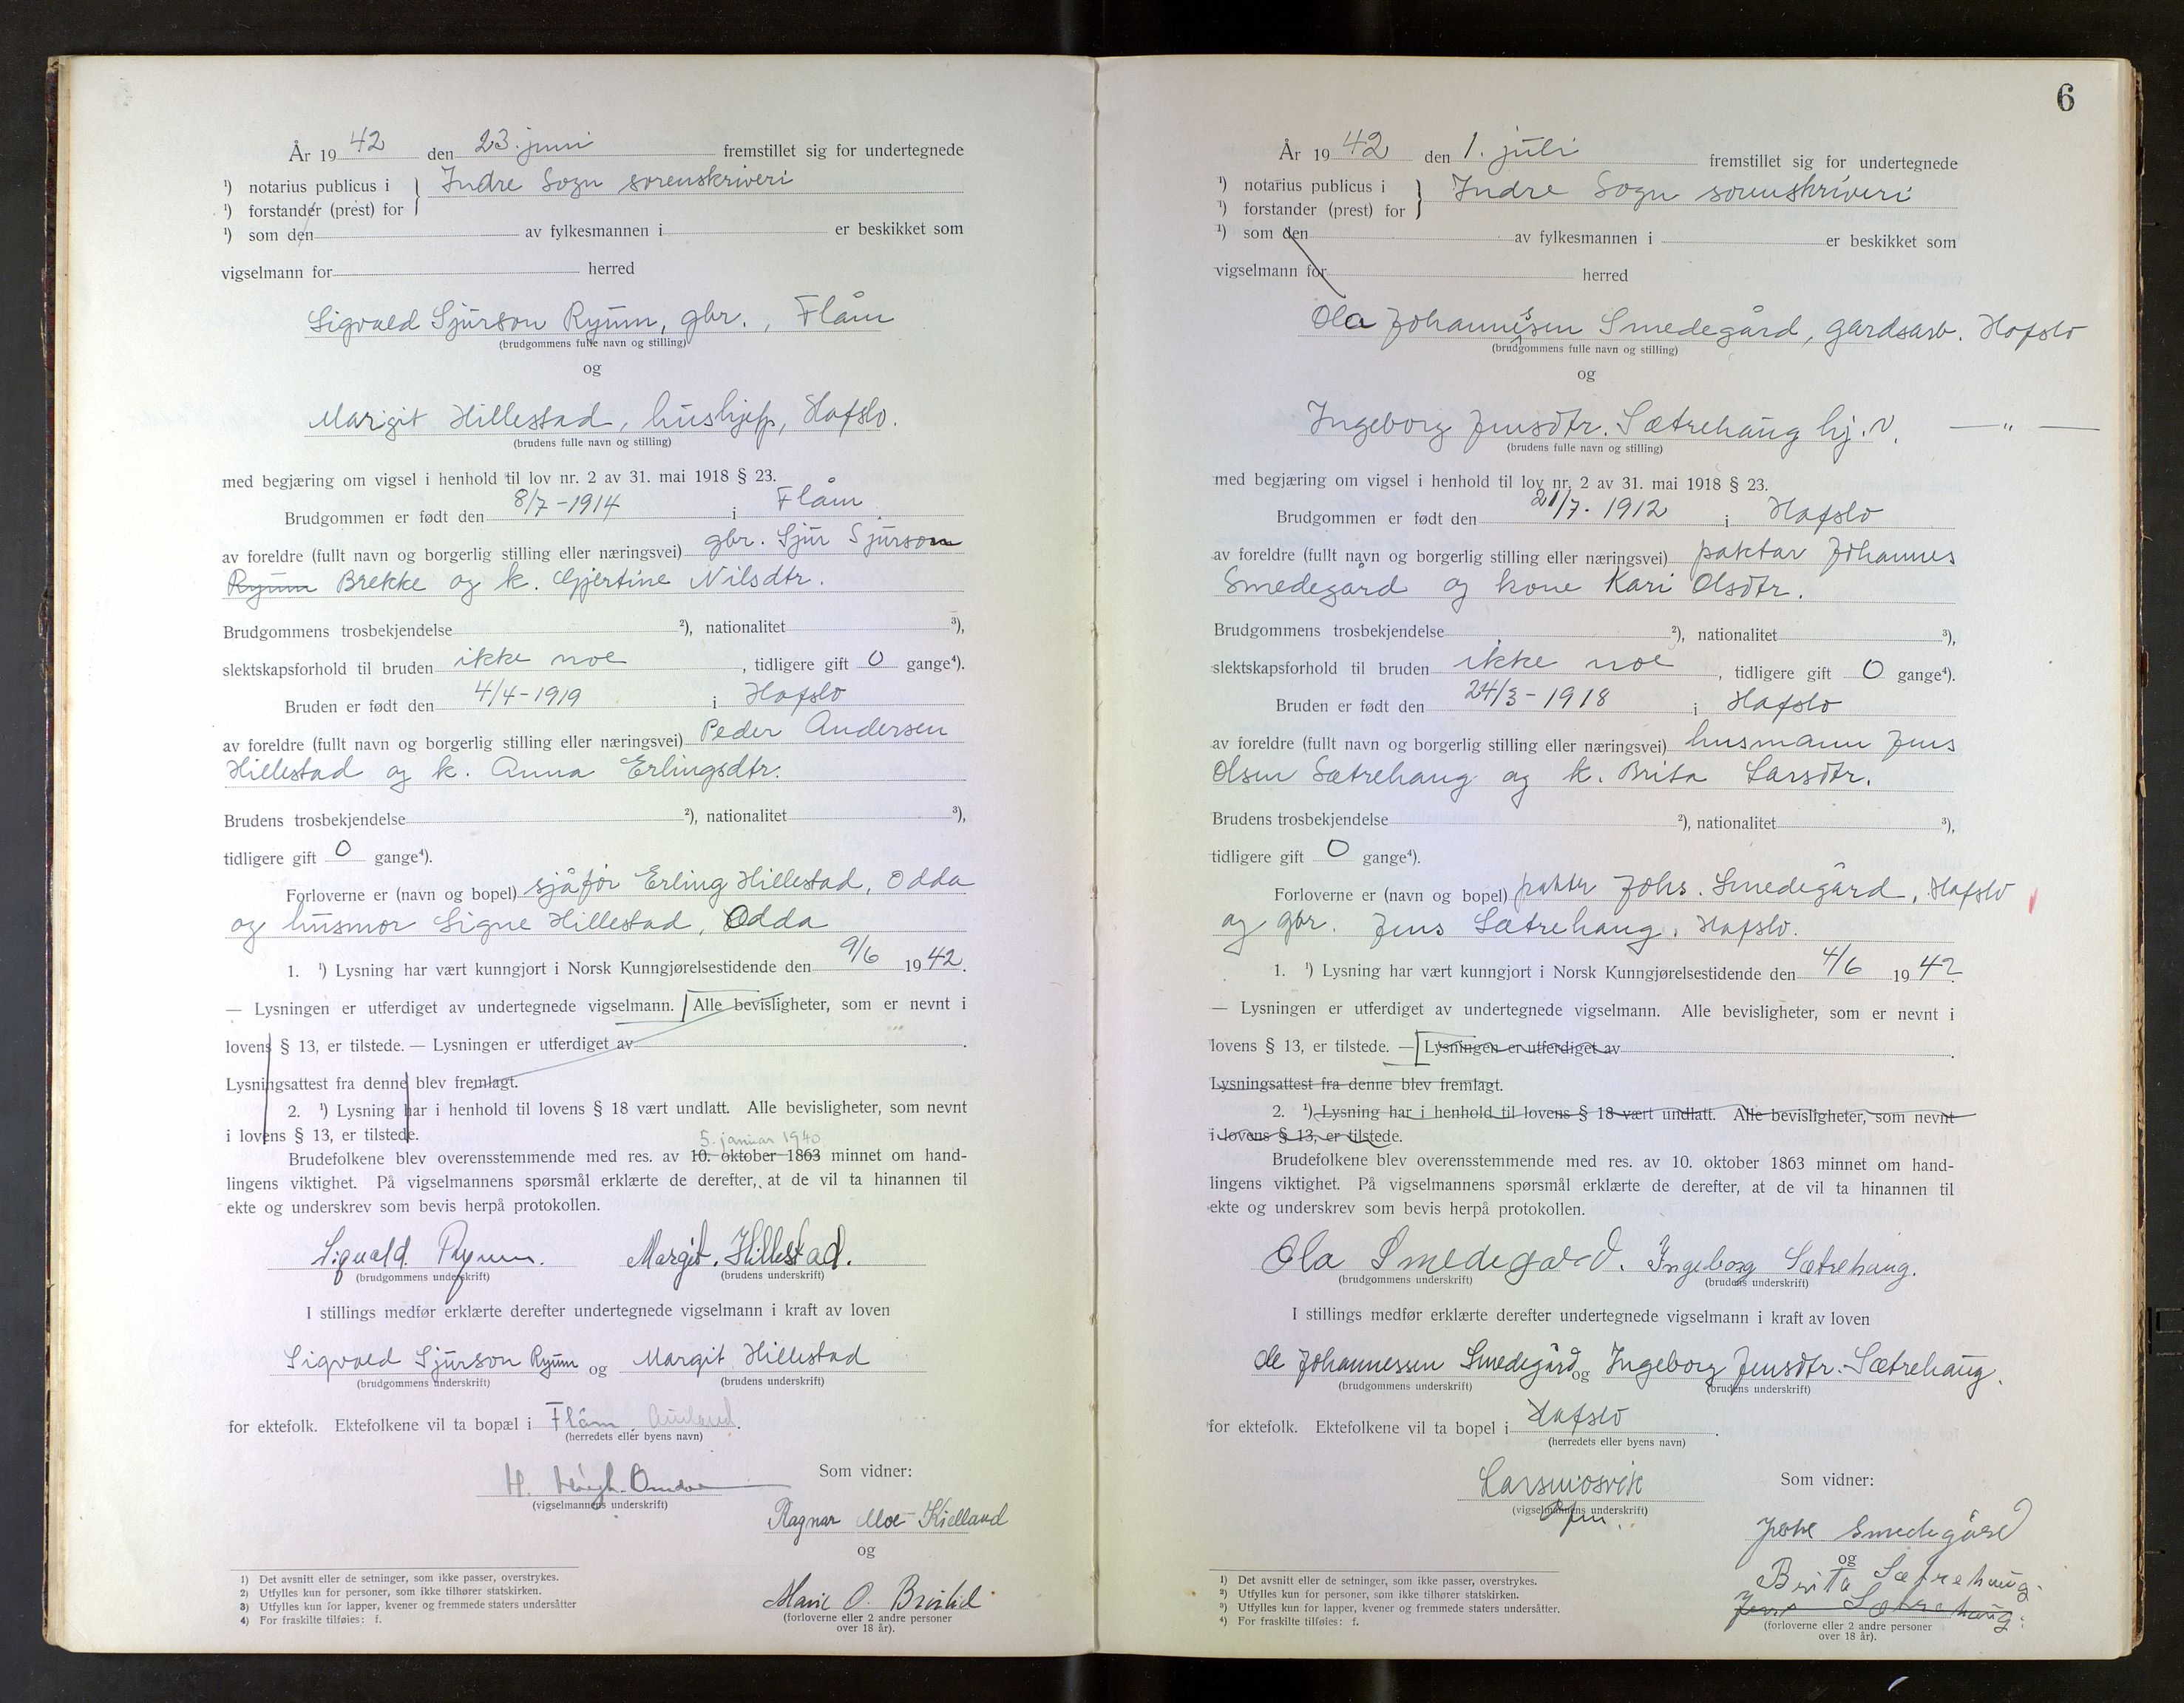 År 19 42 den 23. juni fremstillet sig for undertegnede
¹) notarius publicus i
¹) forstander (prest) for
Indre Sogn sorenskriveri
¹) som den av fylkesmannen i er beskikket som
vigselmann for herred
Sigvald Sjurson Ryum, gbr., Flåm
(brudgommens fulle navn og stilling)
og
Margit Hillestad, hushjelp, Hafslo.
(brudens fulle navn og stilling)
med begjæring om vigsel i henhold til lov nr. 2 av 31. mai 1918 § 23.
Brudgommen er født den 8/7-1914 i Flåm
av foreldre (fullt navn og borgerlig stilling eller næringsvei) gbr. Sjur Sjurson
Ryum Brekke og k. Gjertine Nilsdtr.
Brudgommens trosbekjendelse ²), nationalitet ³),
slektskapsforhold til bruden ikke noe, tidligere gift 0 gange⁴).
Bruden er født den 4/4-1919 i Hafslo
av foreldre (fullt navn og borgerlig stilling eller næringsvei) Peder Andersen
Hillestad og k. Anna Erlingsdtr.
Brudens trosbekjendelse ²), nationalitet ³),
tidligere gift 0 gange⁴).
Forloverne er (navn og bopel) sjåfør Erling Hillestad, Odda
og husmor Signe Hillestad, Odda
1. ¹) Lysning har vært kunngjort i Norsk Kunngjørelsestidende den 9/6 19 42.
— Lysningen er utferdiget av undertegnede vigselmann. Alle bevisligheter, som er nevnt i
lovens § 13, er tilstede. — Lysningen er utferdiget av .
Lysningsattest fra denne blev fremlagt.
2. ¹) Lysning har i henhold til lovens § 18 vært undlatt. Alle bevisligheter, som nevnt
i lovens § 13, er tilstede.
5. januar 1940
Brudefolkene blev overensstemmende med res. av 10. oktober 1863 minnet om hand-
lingens viktighet. På vigselmannens spørsmål erklærte de derefter, at de vil ta hinannen til
ekte og underskrev som bevis herpå protokollen.
Sigvald Ryum. Margit. Hillestad.
(brudgommens underskrift) (brudens underskrift)
I stillings medfør erklærte derefter undertegnede vigselmann i kraft av loven
Sigvald Sjurson Ryum og Margit Hillestad
(brudgommens underskrift) (brudens underskrift)
for ektefolk. Ektefolkene vil ta bopæl i Flåm, Aurland.
(herredets eller byens navn)
Som vidner:
H.
(vigselmannens underskrift)
Ragnar Moe Kielland
og
Marie O.
(forloverne eller 2 andre personer
over 18 år).
1) Det avsnitt eller de setninger, som ikke passer, overstrykes.
2) Utfylles kun for personer, som ikke tilhører statskirken.
3) Utfylles kun for lapper, kvener og fremmede staters undersåtter
4) For fraskilte tilføies: f.
6
År 19 42 den 1. juli fremstillet sig for undertegnede
¹) notarius publicus i
¹) forstander (prest) for
Indre Sogn sorenskriveri
¹) som den av fylkesmannen i er beskikket som
vigselmann for herred
Ola Johannessen Smedegård, gardsarb. Hafslo
(brudgommens fulle navn og stilling)
og
Ingeborg Jensdtr. Sætrehaug hj.v. — " —
(brudens fulle navn og stilling)
med begjæring om vigsel i henhold til lov nr. 2 av 31. mai 1918 § 23.
Brudgommen er født den 21/7. 1912 i Hafslo
av foreldre (fullt navn og borgerlig stilling eller næringsvei) paktar Johannes
Smedegård og kone Kari Olsdtr.
Brudgommens trosbekjendelse ²), nationalitet ³),
slektskapsforhold til bruden ikke noe, tidligere gift 0 gange⁴).
Bruden er født den 24/3-1918 i Hafslo
av foreldre (fullt navn og borgerlig stilling eller næringsvei) husmann Jens
Olsen Sætrehaug og k. Brita Larsdtr.
Brudens trosbekjendelse ²), nationalitet ³),
tidligere gift 0 gange⁴).
Forloverne er (navn og bopel) Johs. Smedegård, Hafslo
og gbr. Jens Sætrehaug, Hafslo.
1. ¹) Lysning har vært kunngjort i Norsk Kunngjørelsestidende den 4/6 19 42.
— Lysningen er utferdiget av undertegnede vigselmann. Alle bevisligheter, som er nevnt i
lovens § 13, er tilstede. — Lysningen er utferdiget av .
Lysningsattest fra denne blev fremlagt.
2. ¹) Lysning har i henhold til lovens § 18 vært undlatt. Alle bevisligheter, som nevnt
i lovens § 13, er tilstede.
Brudefolkene blev overensstemmende med res. av 10. oktober 1863 minnet om hand-
lingens viktighet. På vigselmannens spørsmål erklærte de derefter, at de vil ta hinannen til
ekte og underskrev som bevis herpå protokollen.
Ola Smedegård. Ingeborg Sætrehaug.
(brudgommens underskrift) (brudens underskrift)
I stillings medfør erklærte derefter undertegnede vigselmann i kraft av loven
Johannessen Smedegård og Ingeborg Jensdtr. Sætrehaug.
(brudgommens underskrift) (brudens underskrift)
for ektefolk. Ektefolkene vil ta bopel i Hafslo.
(herredets eller byens navn)
Som vidner:
Lars
(vigselmannens underskrift)
Smedegård
og
Brita Sætrehaug.
Jens Sætrehaug.
(forloverne eller 2 andre personer
over 18 år).
¹) Det avsnitt eller de setninger, som ikke passer, overstrykes.
²) Utfylles kun for personer, som ikke tilhører statskirken.
³) Utfylles kun for lapper, kvener og fremmede staters undersåtter.
⁴) For fraskilte tilføies: f.